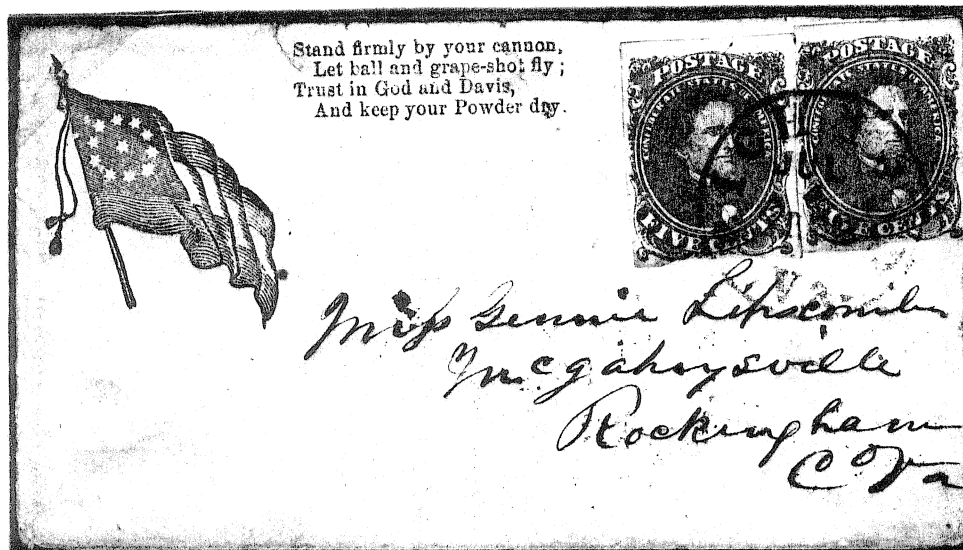 Stand firmly by your cannon,
Let ball and grape-shot fly ;
Trust in God and Davis,
And keep your Powder dry.
POSTAGE
CONFEDERATE STATES OF AMERICA
FIVE CENTS
POSTAGE
CONFEDERATE STATES OF AMERICA
FIVE CENTS
Miss Gennie Lipscomb
McGaheysville
Rockingham
Co Va